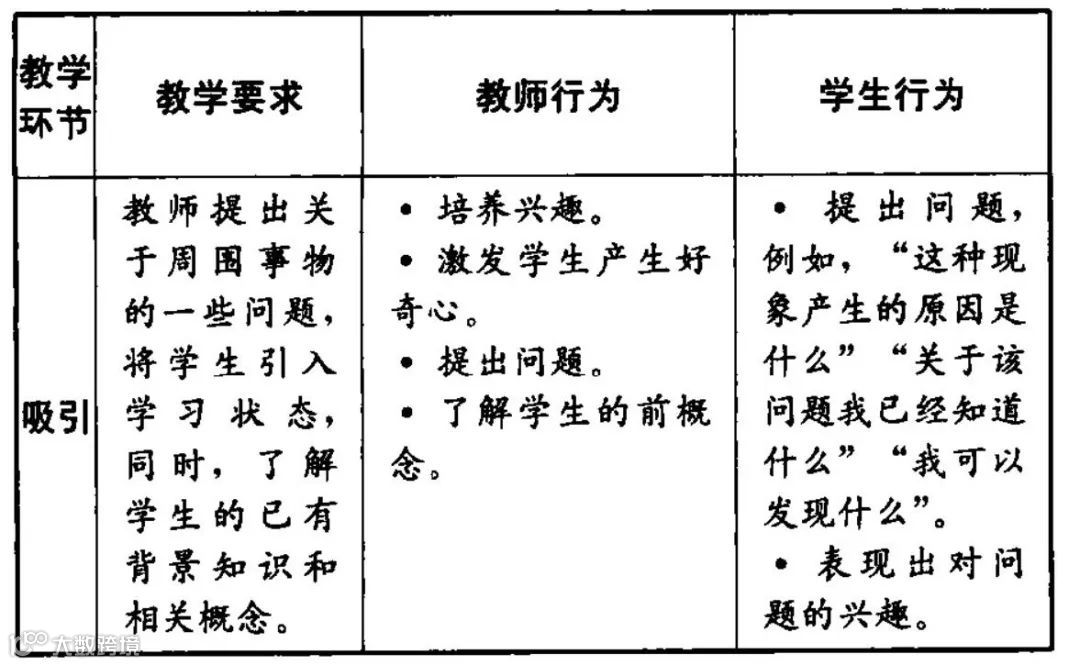 教学
环节
教学要求
教师行为
学生行为
吸引
教师提出关
于周围事物
的一些问题，
将学生引入
学习状态，
同时，了解
学生的已有
背景知识和
相关概念。
• 培养兴趣。
• 激发学生产生好
奇心。
• 提出问题。
• 了解学生的前概
念。
• 提出问题，
例如，“这种现
象产生的原因是
什么”“关于该
问题我已经知道
什么”“我可以
发现什么”。
• 表现出对问
题的兴趣。
大数跨境